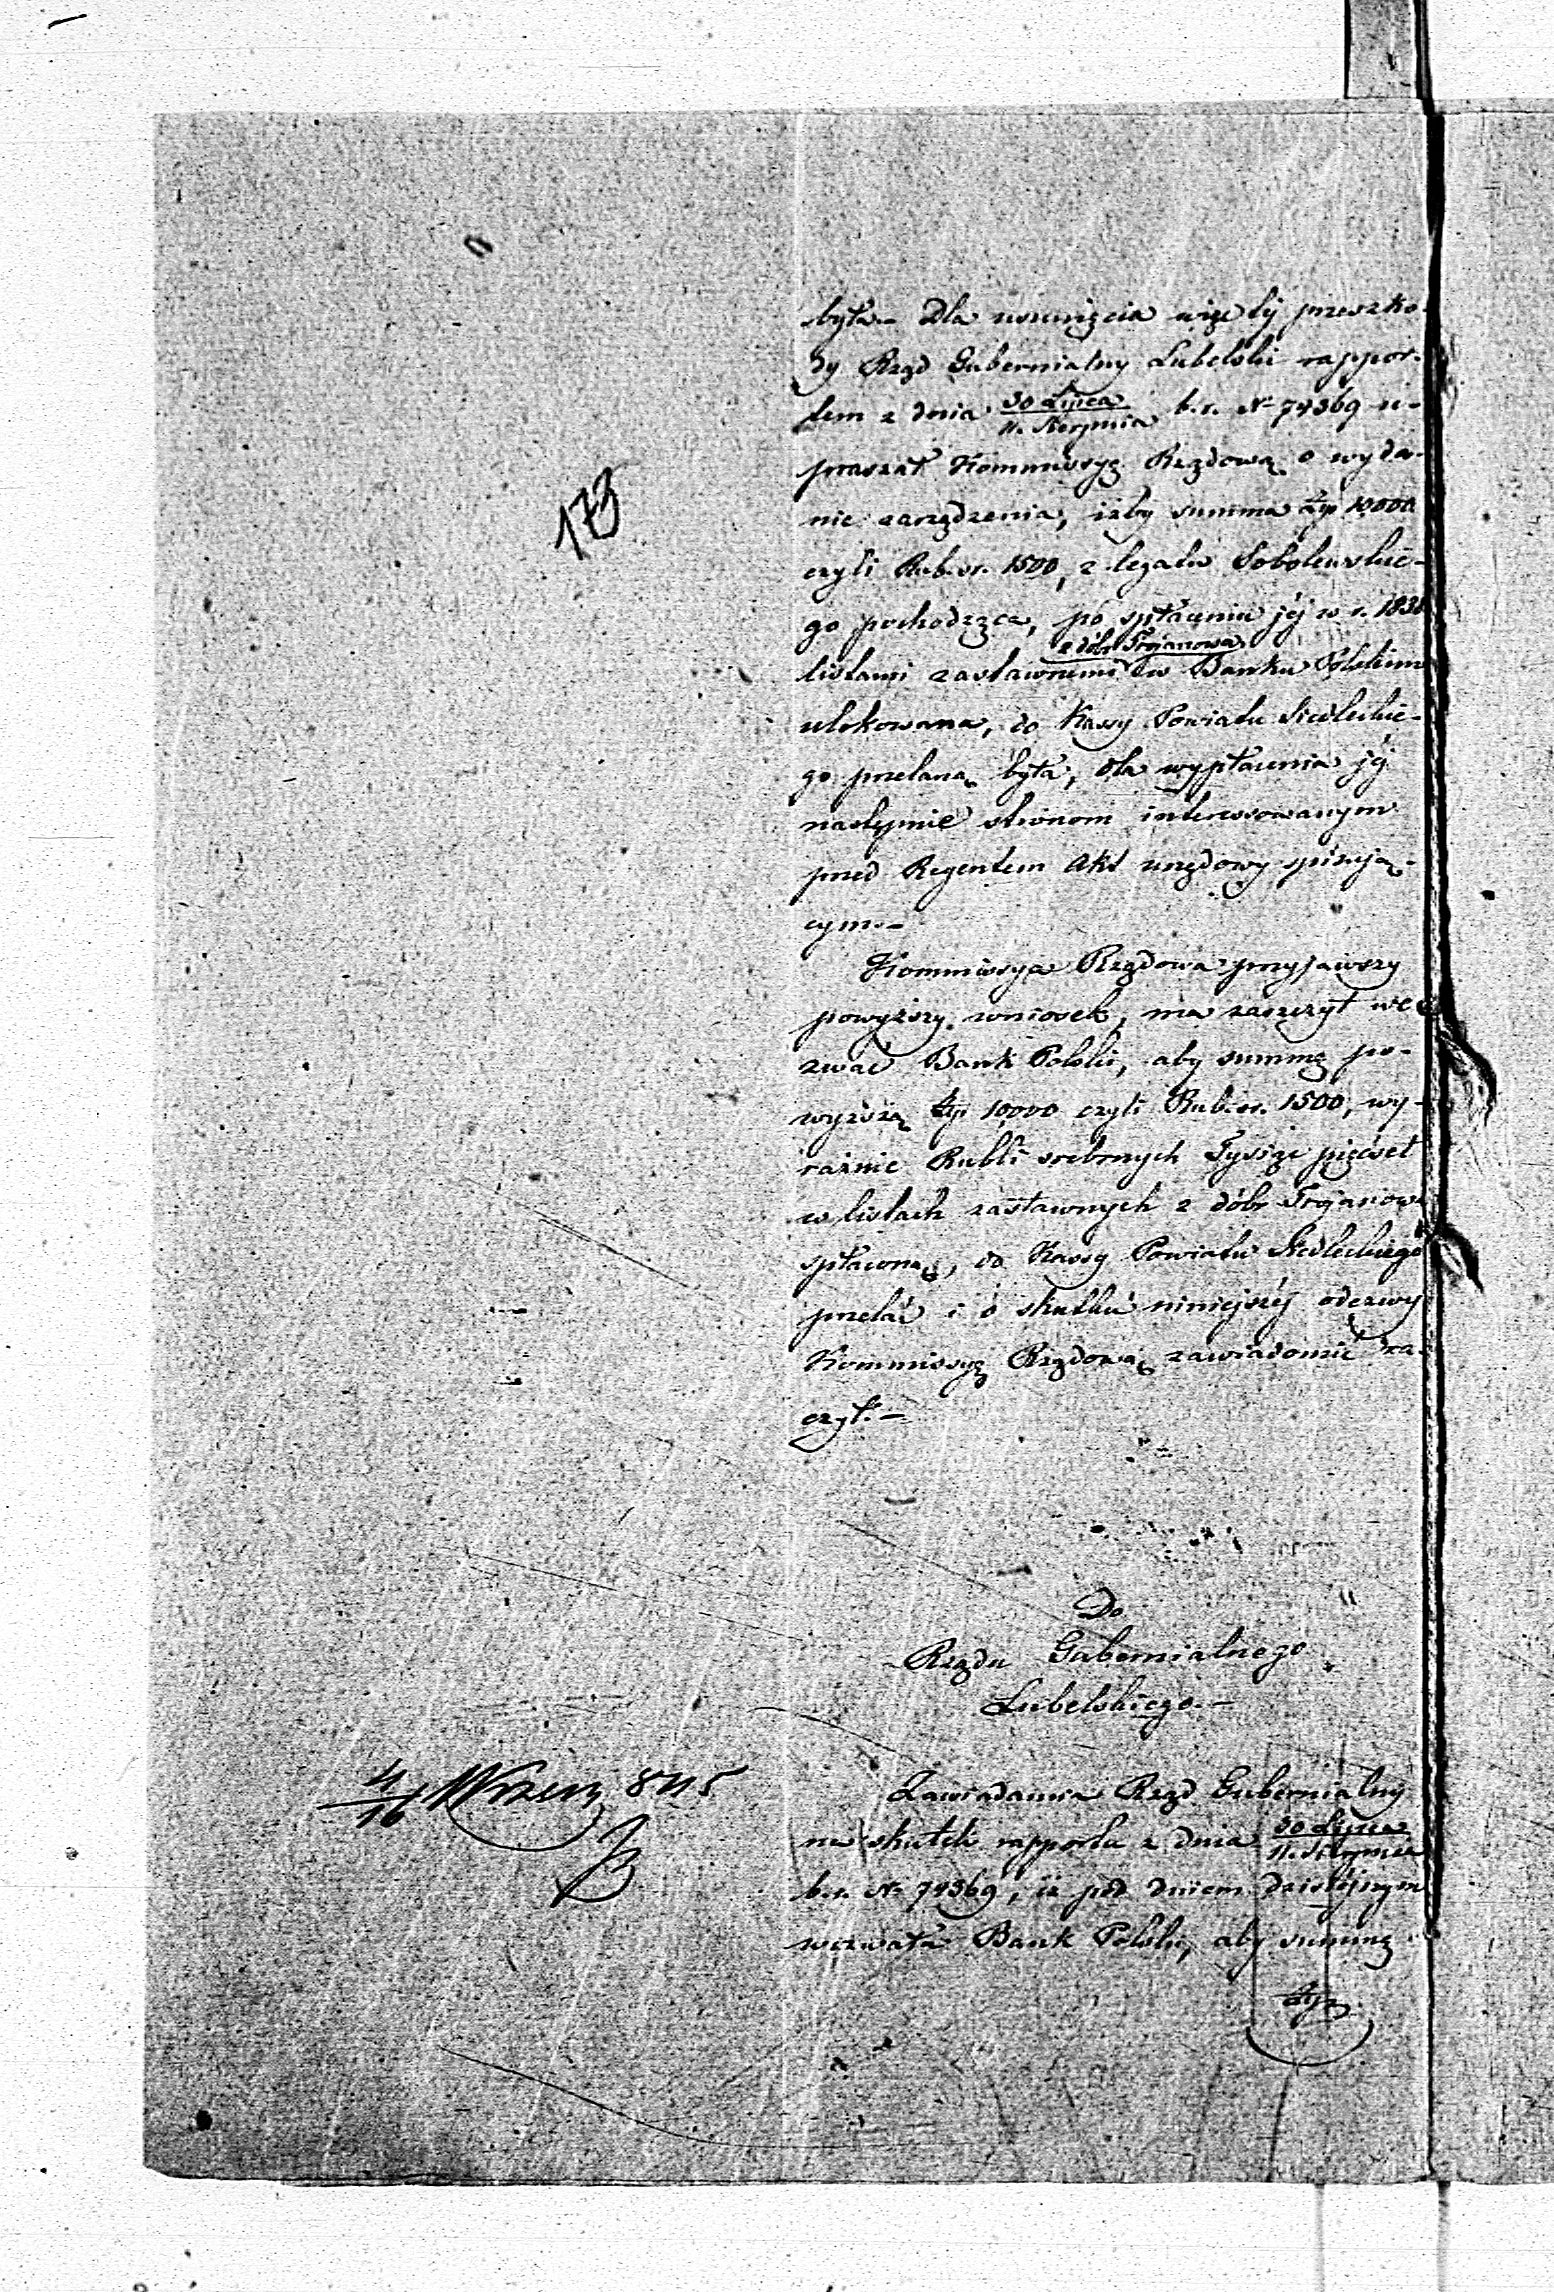 173
była.- Dla usunięcia więc téj przeszko-
dy Rząd Gubernialny Lubelski rappor-
tem z dnia 30 Lipca / 11. Sierpnia b.r. № 74369 u-
praszał Kommissyę Rządową o wyda-
nie zarządzenia, iżby summa Złp 10000
czyli Rub.sr. 1500, z legatu Sobolewskie-
go pochodząca, po spłaceniu jéj w r. 1838
z dóbr Trojanowa
listami zastawnemi w Banku Polskim
ulokowana, do Kassy Powiatu Siedleckie-
go przelaną była, dla wypłacenia jéj
następnie stronom interessowanym
przed Regentem Akt urzędowy spisują-
cym.-
Kommissya Rządowa przyjąwszy
powyższy wniosek, ma zaszczyt we-
zwać Bank Polski, aby summę po-
wyższą Złp 10,000 czyli Rub.sr. 1500, wy-
raźnie Rubli srebrnych Tysiąc pięćset
w listach zastawnych z dóbr Trojanowa
spłaconą, do Kassy Powiatu Siedleckiego
przelać i o skutku niniejszéj odezwy
Kommissyę Rządową zawiadomić ra-
czył.-
Do
Rządu Gubernialnego
Lubelskiego.-
4/16 Wrześ 845
Zawiadamia Rząd Gubernialny
na skutek rapportu z dnia 30 Lipca / 11. Sierpnia
b.r. № 74369, iż pod dniem dzisiejszym
wezwała Bank Polski, aby summę
Złp